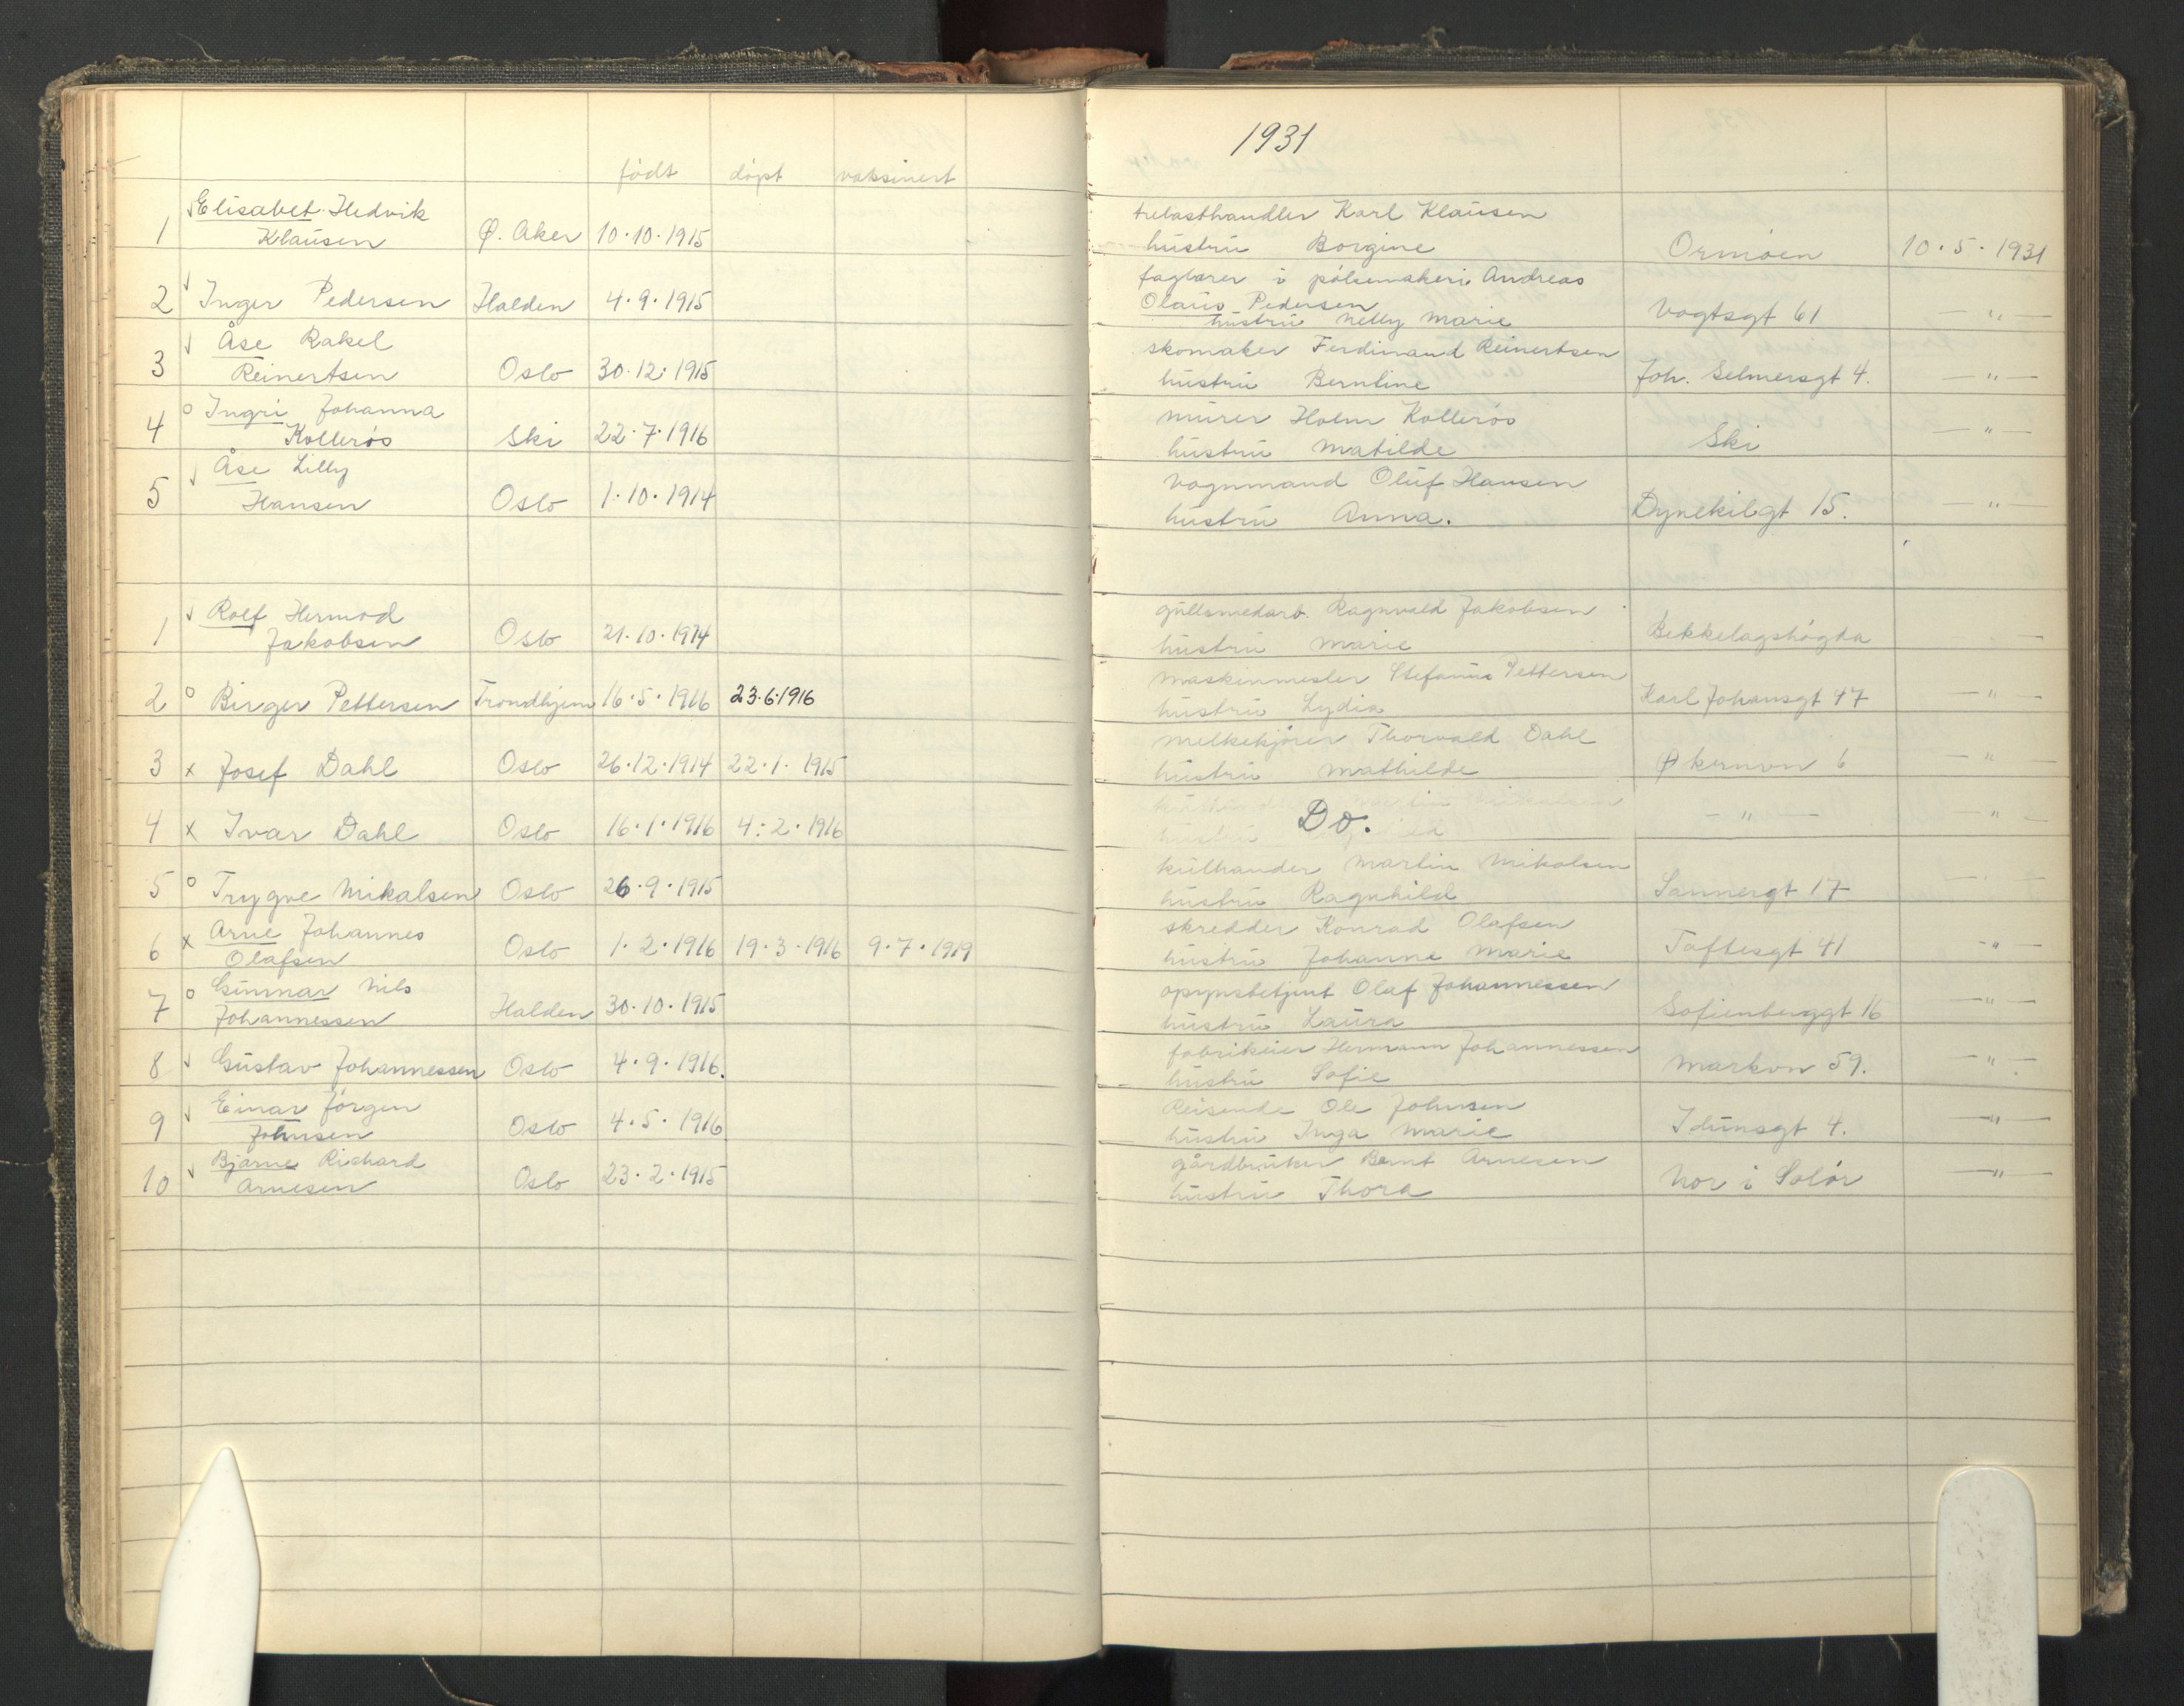 1931
født døpt vaksinert
Elisabet Hedvik trelasthandler Karl Klausen
1 Klausen Ø. Aker 10.10.1915 hustru Borgine Ormøen 10.5.1931
faglærer i pølsemakeri Andreas
2 Inger Pedersen Halden 4.9.1915 Olaus Pedersen Vogtsgt 61 — " —
hustru Nelly Marie
Åse Rakel skomaker Ferdinand Reinertsen
3 Reinertsen Oslo 30.12.1915 hustru Berntine Joh. Selmersgt 4. — " —
o Ingri Johanna murer Holm Kollerøs
4 Kollerøs Ski 22.7.1916 hustru Matilde Ski — " —
Åse Lilly vognmand Oluf Hansen
5 Hansen Oslo 1.10.1914 hustru Anna. Dynekilgt 15. — " —
Rolf Hermod gullsmedarb. Ragnvald Jakobsen
1 Jakobsen Oslo 21.10.1914 hustru Marie Bekkelagshøgda
maskinmester Stefanus Pettersen
2 o Birger Pettersen Trondhjem 16.5.1916 23.6.1916 hustru Lydia Karl Johansgt 47 — " —
melkekjører Thorvald Dahl
3 x Josef Dahl Oslo 26.12.1914 22.1.1915 hustru Mathilde Økernvn 6 — " —
4 x Ivar Dahl Oslo 16.1.1916 4.2.1916 Do. — " — — " —
kullhandler Martin Mikalsen
5 o Trygve Mikalsen Oslo 26.9.1915 hustru Ragnhild Sannergt 17 — " —
x Arne Johannes skredder Konrad Olafsen
6 Olafsen Oslo 1.2.1916 19.3.1916 9.7.1919 hustru Johanne Marie Toftesgt 41 — " —
o Gunnar Nils opsynsbetjent Olaf Johannessen
7 Johannessen Halden 30.10.1915 hustru Laura Sofienberggt 16 — " —
fabrikeier Hermann Johannessen
8 Gustav Johannessen Oslo 4.9.1916. hustru Sofie Markvn 59. — " —
Einar Jørgen Reisende Ole Johnsen
9 Johnsen Oslo 4.5.1916 hustru Inga Marie Idunsgt 4. — " —
Bjarne Richard gårdbruker Bernt Arnesen
10 Arnesen Oslo 23.2.1915 hustru Thora Nor i Solør — " —